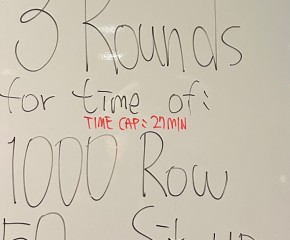 3 Rounds
for time of:
TIME CAP: 27 MIN
1000 Row
50